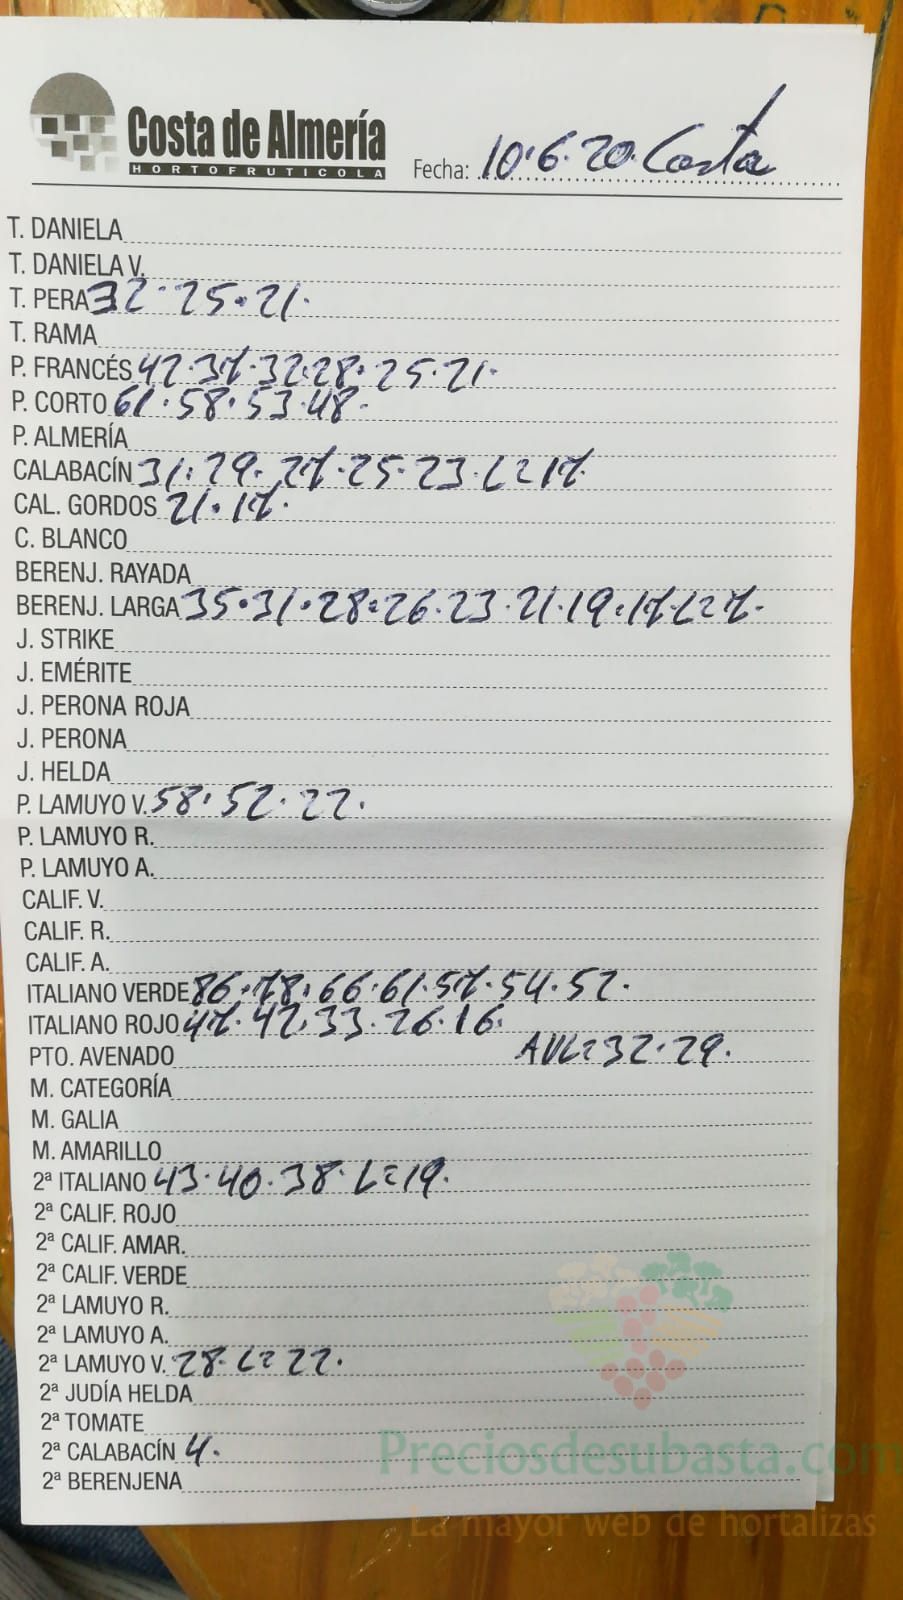 Costa de Almería
HORTOFRUTICOLA
Fecha: 10.6.20. Costa
T. DANIELA
T. DANIELA V.
T. PERA 32.25.21.
T. RAMA
P. FRANCÉS 42.37.32.28.25.21.
P. CORTO 61.58.53.48.
P. ALMERÍA
CALABACÍN 31.29.27.25.23.L=17.
CAL. GORDOS 21.17.
C. BLANCO
BERENJ. RAYADA
BERENJ. LARGA 35.31.28.26.23.21.19.17.L=7.
J. STRIKE
J. EMÉRITE
J. PERONA ROJA
J. PERONA
J. HELDA
P. LAMUYO V. 58.52.22.
P. LAMUYO R.
P. LAMUYO A.
CALIF. V.
CALIF. R.
CALIF. A.
ITALIANO VERDE 86.78.66.61.57.54.52.
ITALIANO ROJO 47.42.33.26.16.
PTO. AVENADO AVL=32.29.
M. CATEGORÍA
M. GALIA
M. AMARILLO
2ª ITALIANO 43.40.38.L=19.
2ª CALIF. ROJO
2ª CALIF. AMAR.
2ª CALIF. VERDE
2ª LAMUYO R.
2ª LAMUYO A.
2ª LAMUYO V. 28.L=22.
2ª JUDÍA HELDA
2ª TOMATE
2ª CALABACÍN 4.
2ª BERENJENA
Preciosdesubasta.com
La mayor web de hortalizas